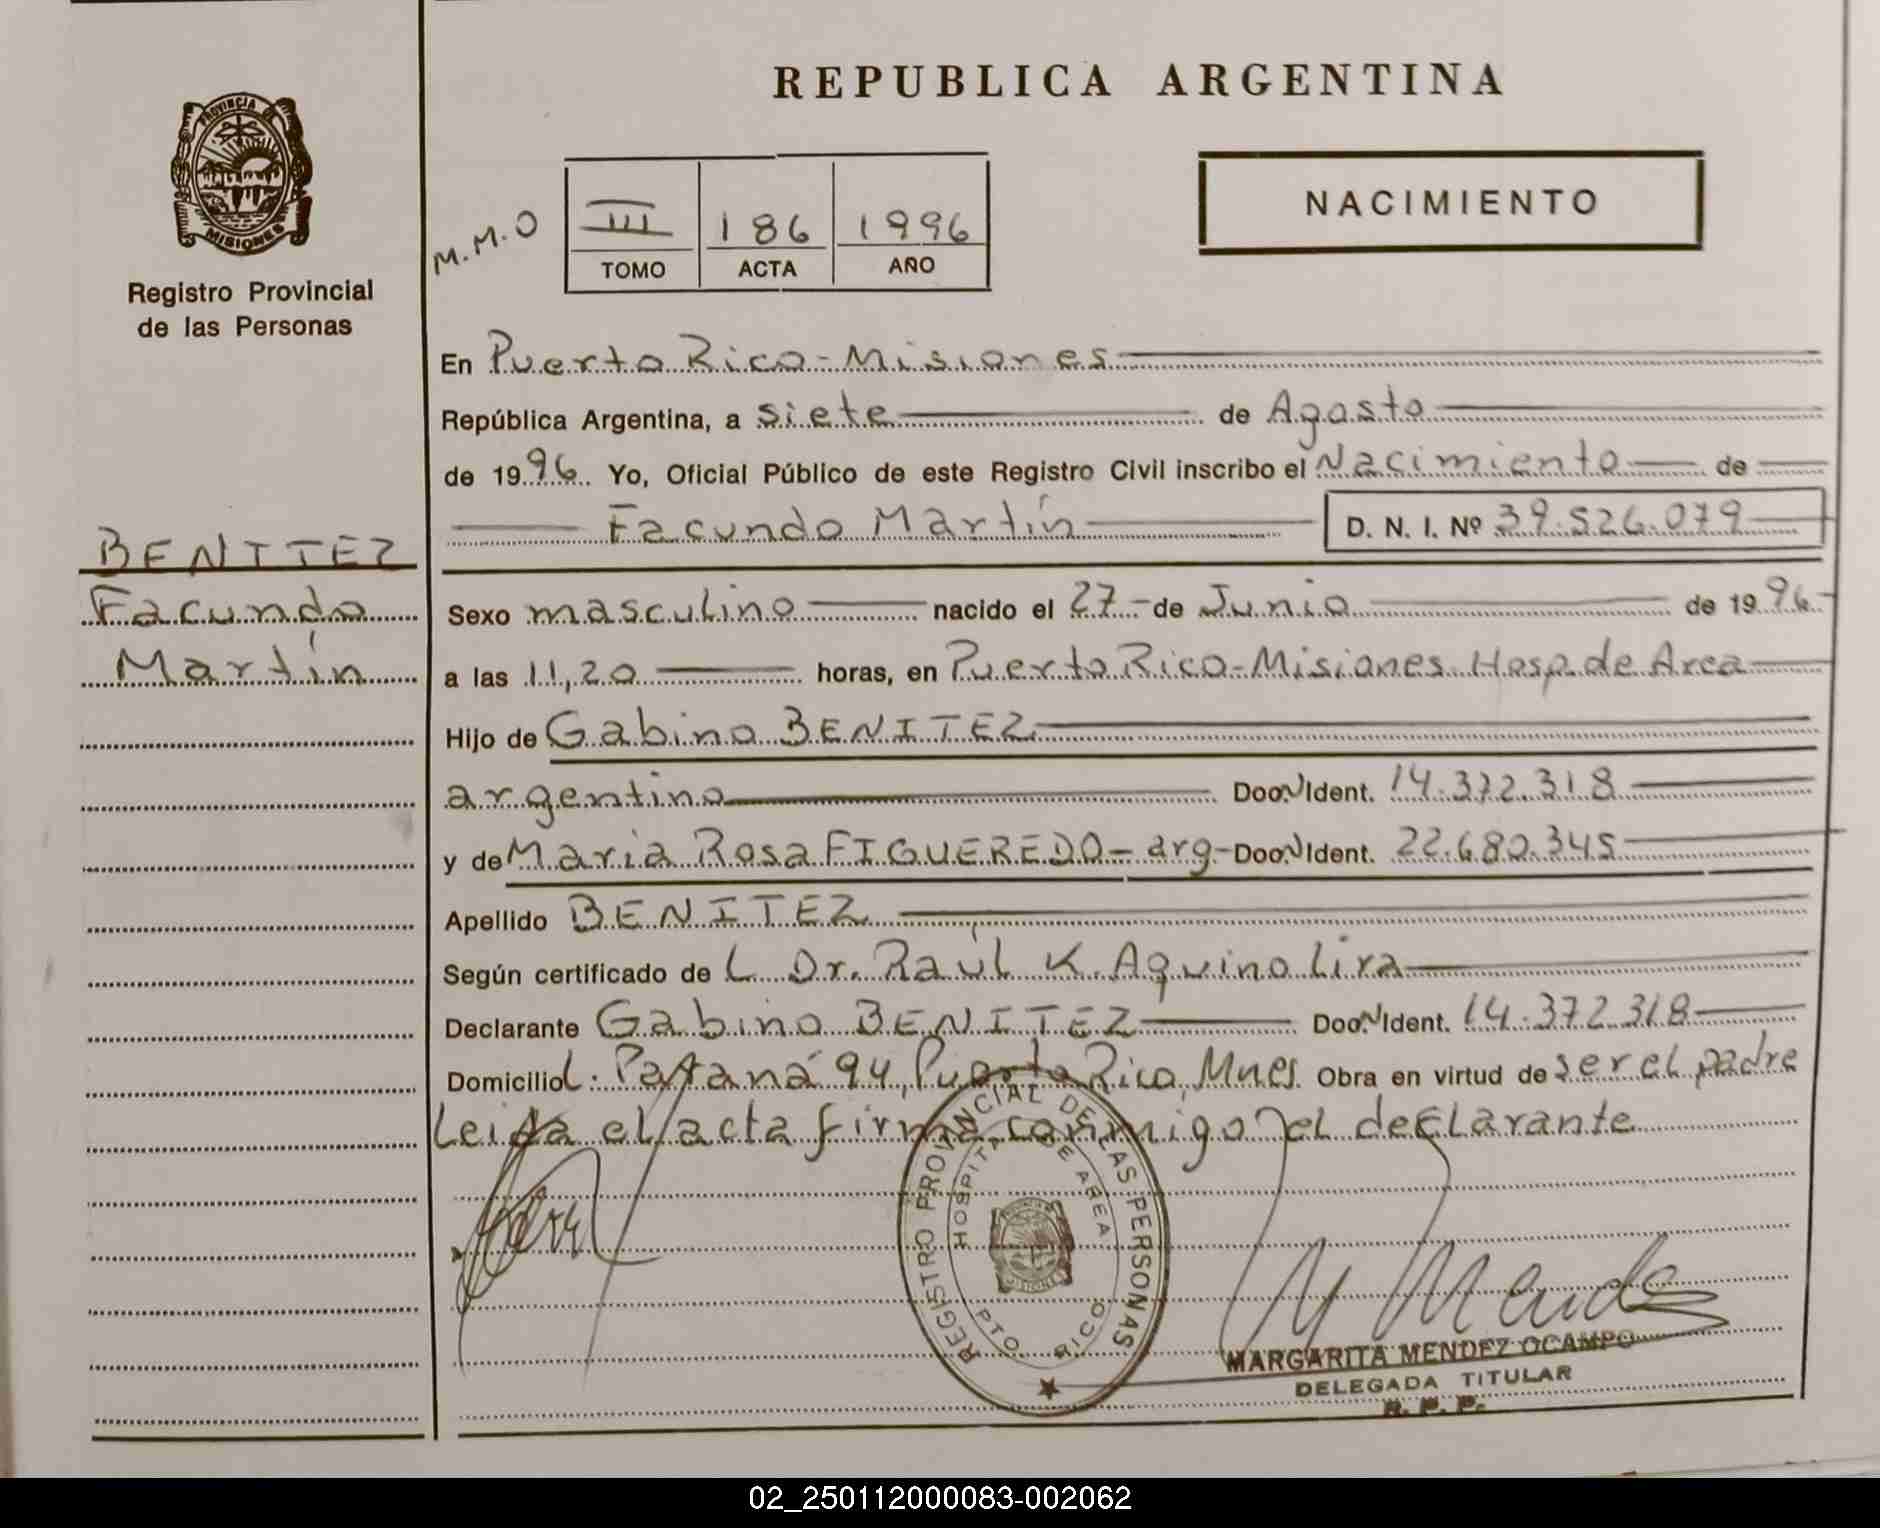 REPUBLICA ARGENTINA
PROVINCIA DE
MISIONES
Registro Provincial
de las Personas
M.M.O
III 186 1996
TOMO ACTA AÑO
NACIMIENTO
En Puerto Rico - Misiones
República Argentina, a siete de Agosto
de 1996. Yo, Oficial Público de este Registro Civil inscribo el Nacimiento de
Facundo Martín D. N. I. Nº 39.526.079
BENITEZ
Facundo
Martín
Sexo masculino nacido el 27 de Junio de 1996
a las 11,20 horas, en Puerto Rico - Misiones Hosp. de Area
Hijo de Gabino BENITEZ
argentino Doc. Ident. 14.372.318
y de Maria Rosa FIGUEREDO - arg - Doc. Ident. 22.680.345
Apellido BENITEZ
Según certificado de L Dr. Raúl K. Aquino Lira
Declarante Gabino BENITEZ Doc. Ident. 14.372.318
Domicilio L. Paraná 94, Puerto Rico, Mnes. Obra en virtud de ser el padre
Leida el acta firma conmigo el declarante
REGISTRO PROVINCIAL DE LAS PERSONAS
HOSPITAL DE AREA
MISIONES
PTO RICO
M Mendez
MARGARITA MENDEZ OCAMPO
DELEGADA TITULAR
R. P. P.
02_250112000083-002062